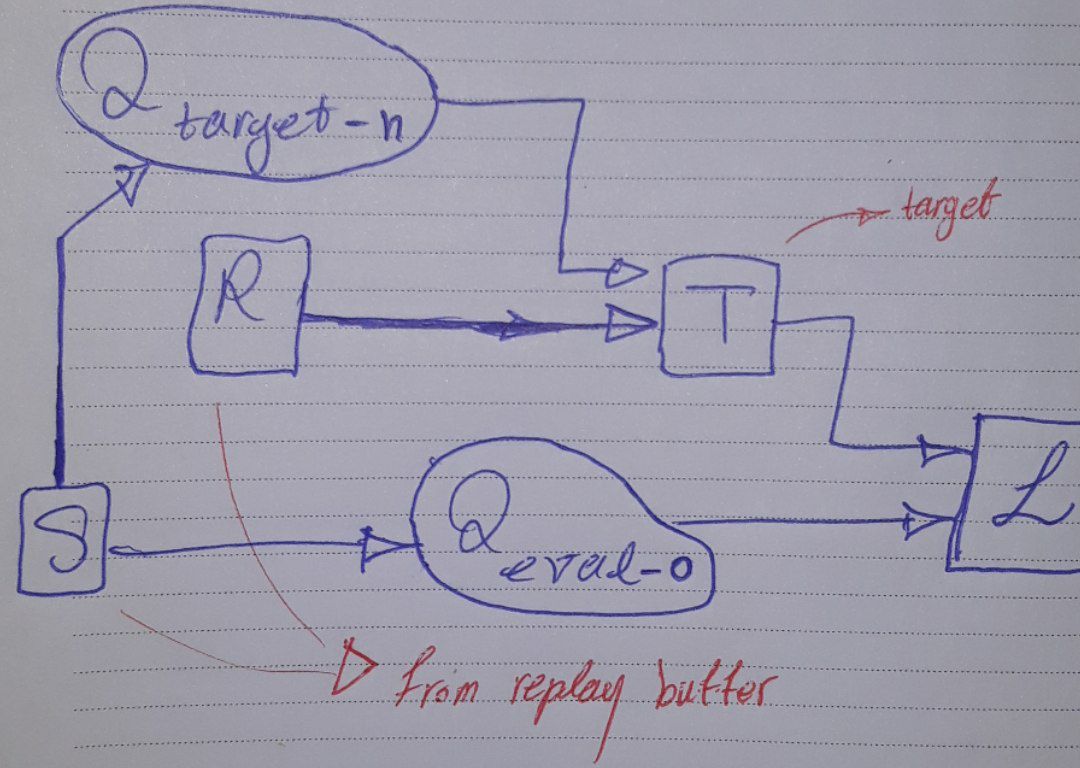 Q target-n
target
R
T
L
S
Q eval-o
from replay buffer